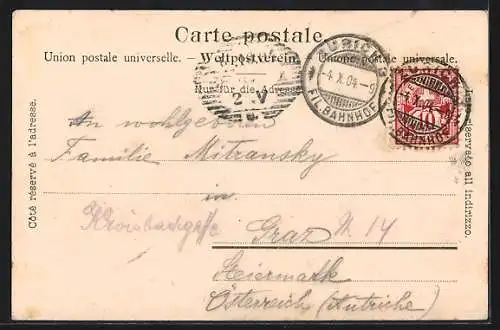 Carte postale.
Union postale universelle. — Weltpostverein. — Unione postale universale.
Nur für die Adresse
ZÜRICH
-4.X.04-9
FIL. BAHNHOF
2-V
10
Côté réservé à l'adresse.
Lato riservato all indirizzo.
An wohlgeboren
Familie Mitransky
in
Kroisbachgasse
Graz N 14
Steiermark
Österreich (Autriche)